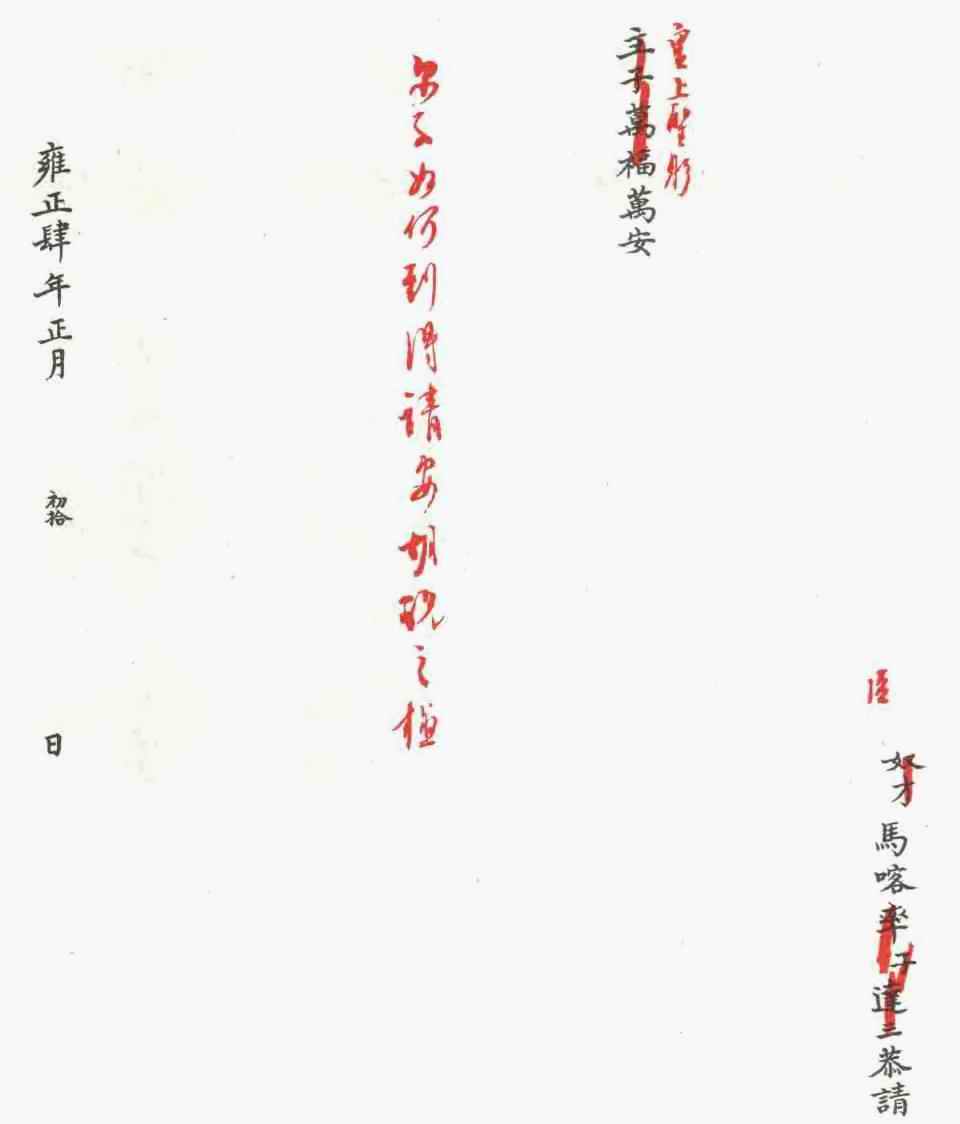 奴才馬喀率子達三恭請
臣
皇上聖躬
主子萬福萬安
尔子如何到得請安胡說之極
雍正肆年正月初拾日